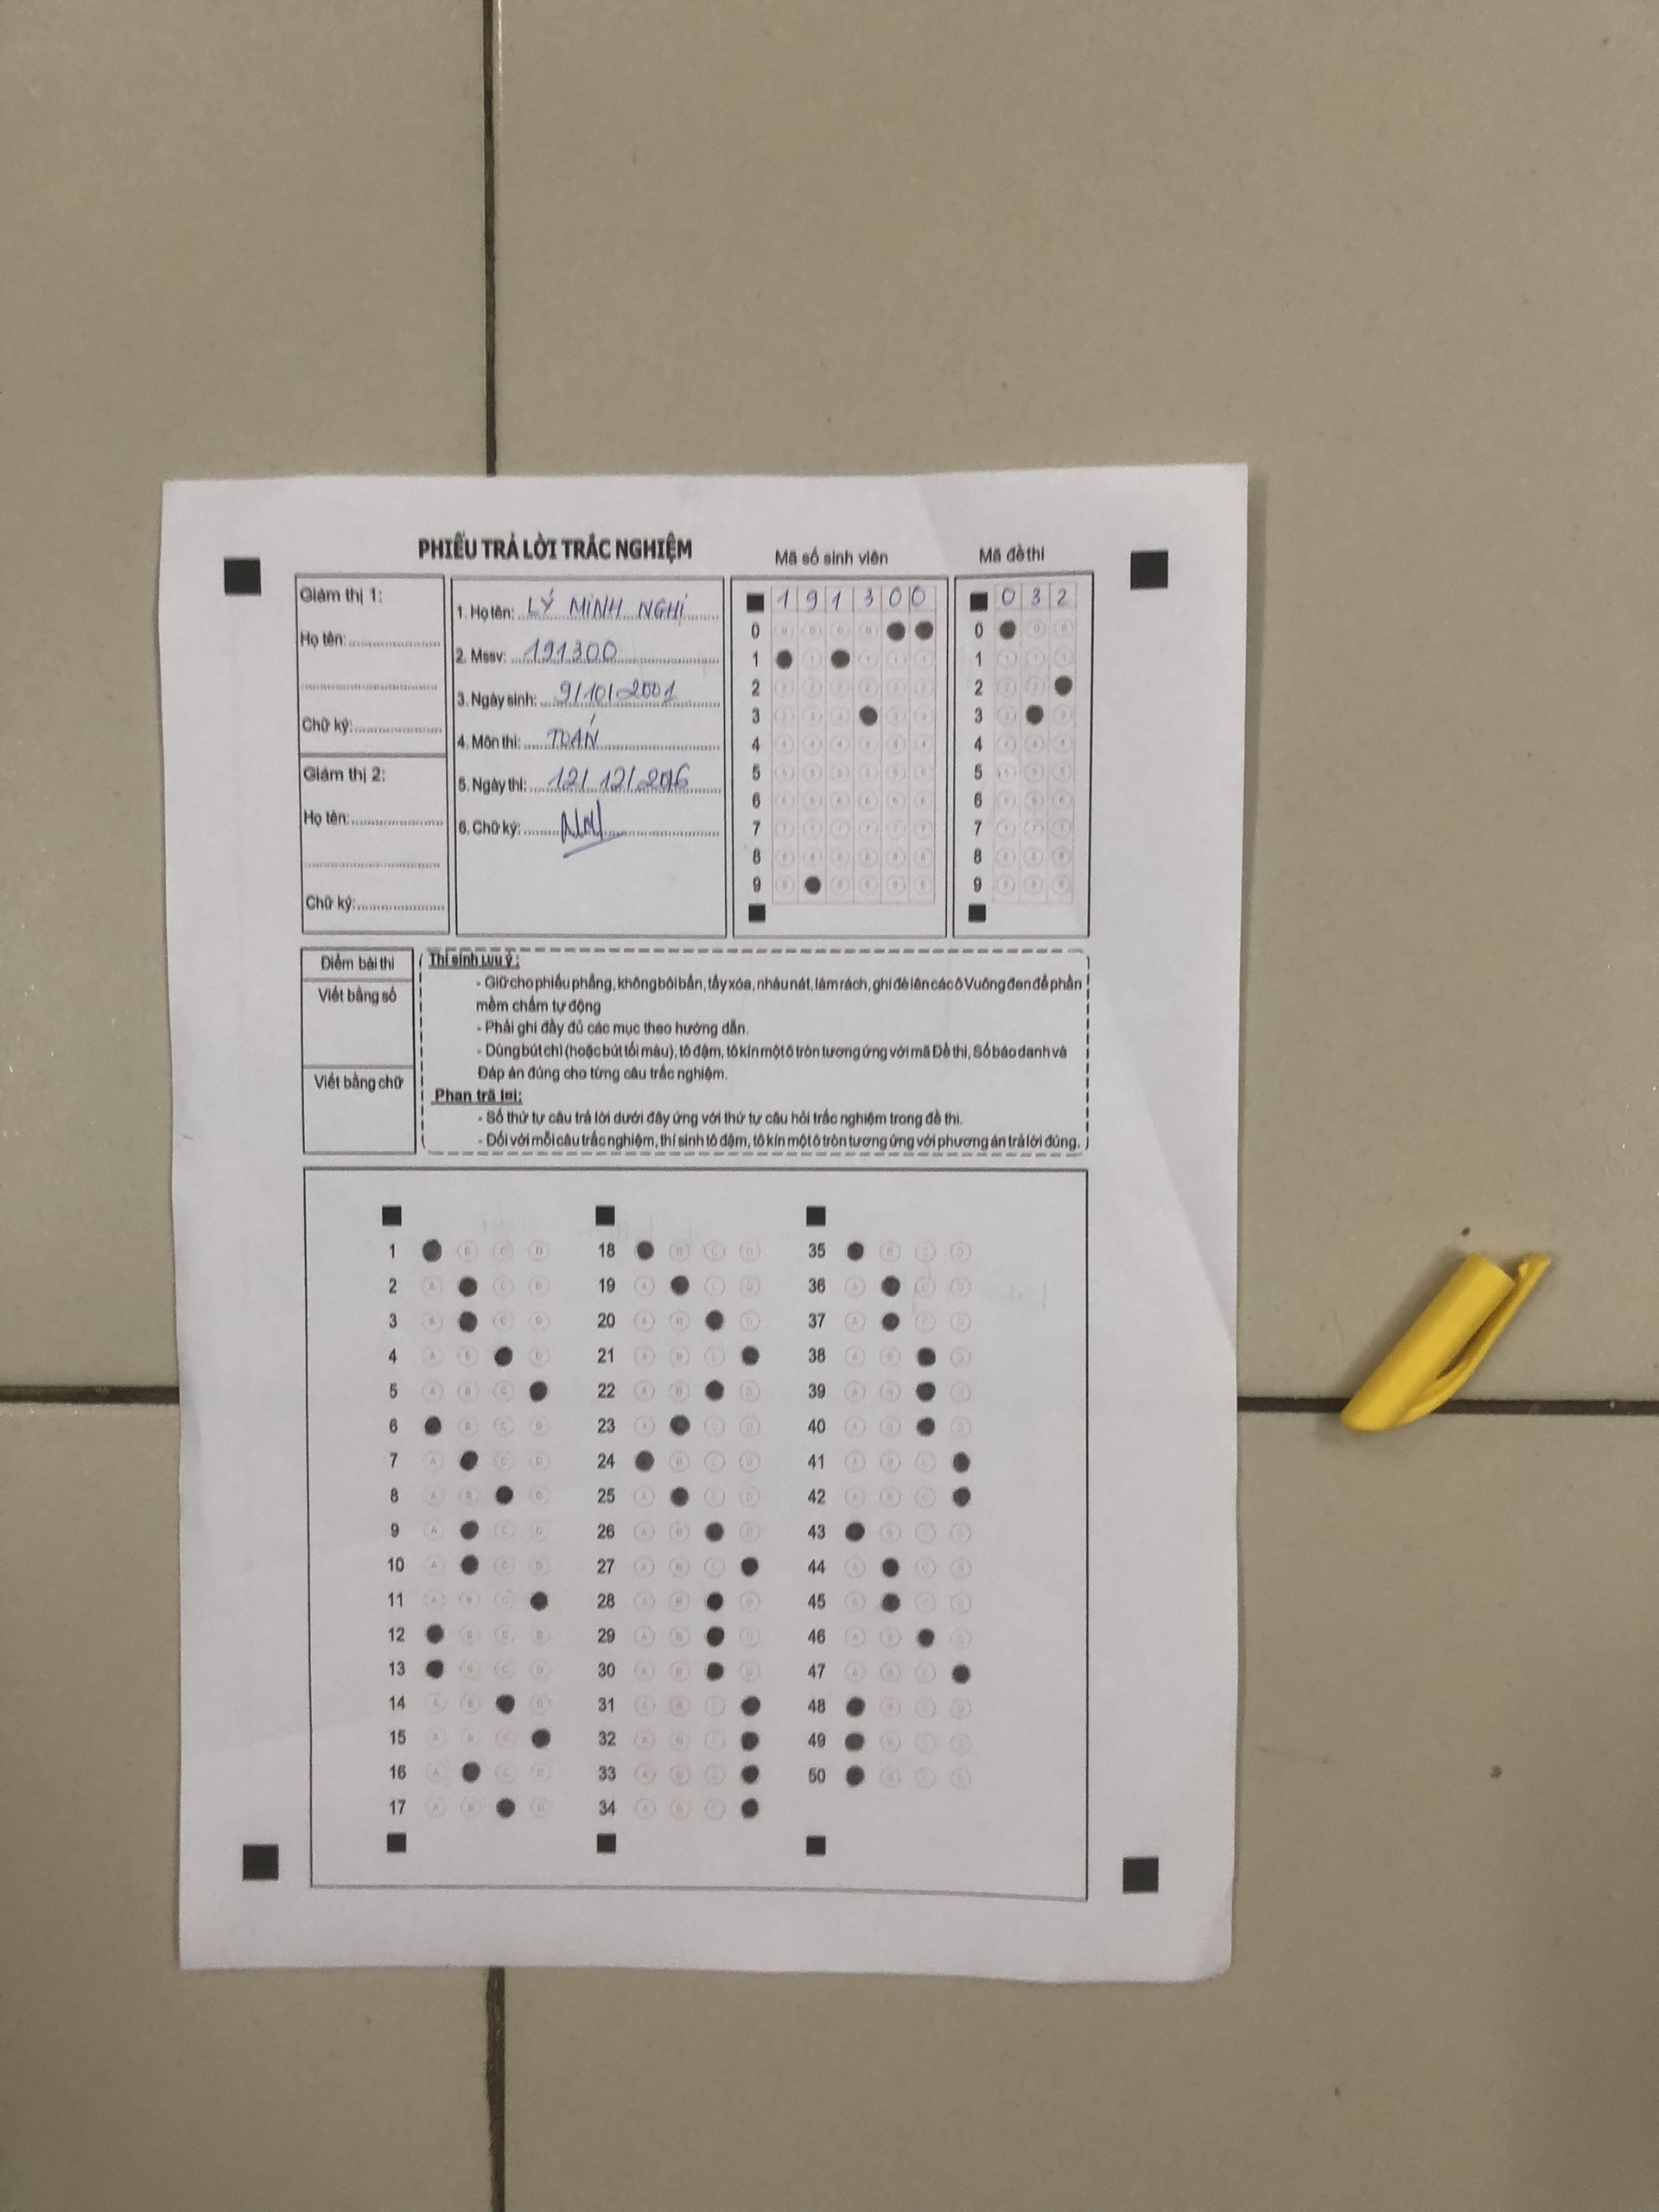 PHIẾU TRẢ LỜI TRẮC NGHIỆM
Giám thị 1:
Họ tên:
Chữ ký:
Giám thị 2:
Họ tên:
Chữ ký:
1. Họ tên: LÝ MINH NGHI
2. Mssv: 191300
3. Ngày sinh: 9/10/2001
4. Môn thi: TOÁN
5. Ngày thi: 12/12/2016
6. Chữ ký:
Mã số sinh viên
1 9 1 3 0 0
0
1
2
3
4
5
6
7
8
9
Mã đề thi
0 3 2
0
1
2
3
4
5
6
7
8
9
Điểm bài thi
Viết bằng số
Viết bằng chữ
Thí sinh lưu ý:
- Giữ cho phiếu phẳng, không bôi bẩn, tẩy xóa, nhàu nát, làm rách, ghi đè lên các ô Vuông đen để phần
mềm chấm tự động
- Phải ghi đầy đủ các mục theo hướng dẫn.
- Dùng bút chì (hoặc bút tối màu), tô đậm, tô kín một ô tròn tương ứng với mã Đề thi, Số báo danh và
Đáp án đúng cho từng câu trắc nghiệm.
Phan trả lơi:
- Số thứ tự câu trả lời dưới đây ứng với thứ tự câu hỏi trắc nghiệm trong đề thi.
- Đối với mỗi câu trắc nghiệm, thí sinh tô đậm, tô kín một ô tròn tương ứng với phương án trả lời đúng.
1 B C D
2 A C D
3 A C D
4 A B D
5 A B C
6 B C D
7 A C D
8 A B D
9 A C D
10 A C D
11 A B C
12 B C D
13 B C D
14 A B D
15 A B C
16 A C D
17 A B D
18 B C D
19 A C D
20 A B D
21 A B C
22 A B D
23 A C D
24 B C D
25 A C D
26 A B D
27 A B C
28 A B D
29 A B D
30 A B D
31 A B C
32 A B C
33 A B C
34 A B C
35 B C D
36 A C D
37 A C D
38 A B D
39 A B D
40 A B D
41 A B C
42 A B C
43 B C D
44 A C D
45 A C D
46 A B D
47 A B C
48 B C D
49 B C D
50 B C D